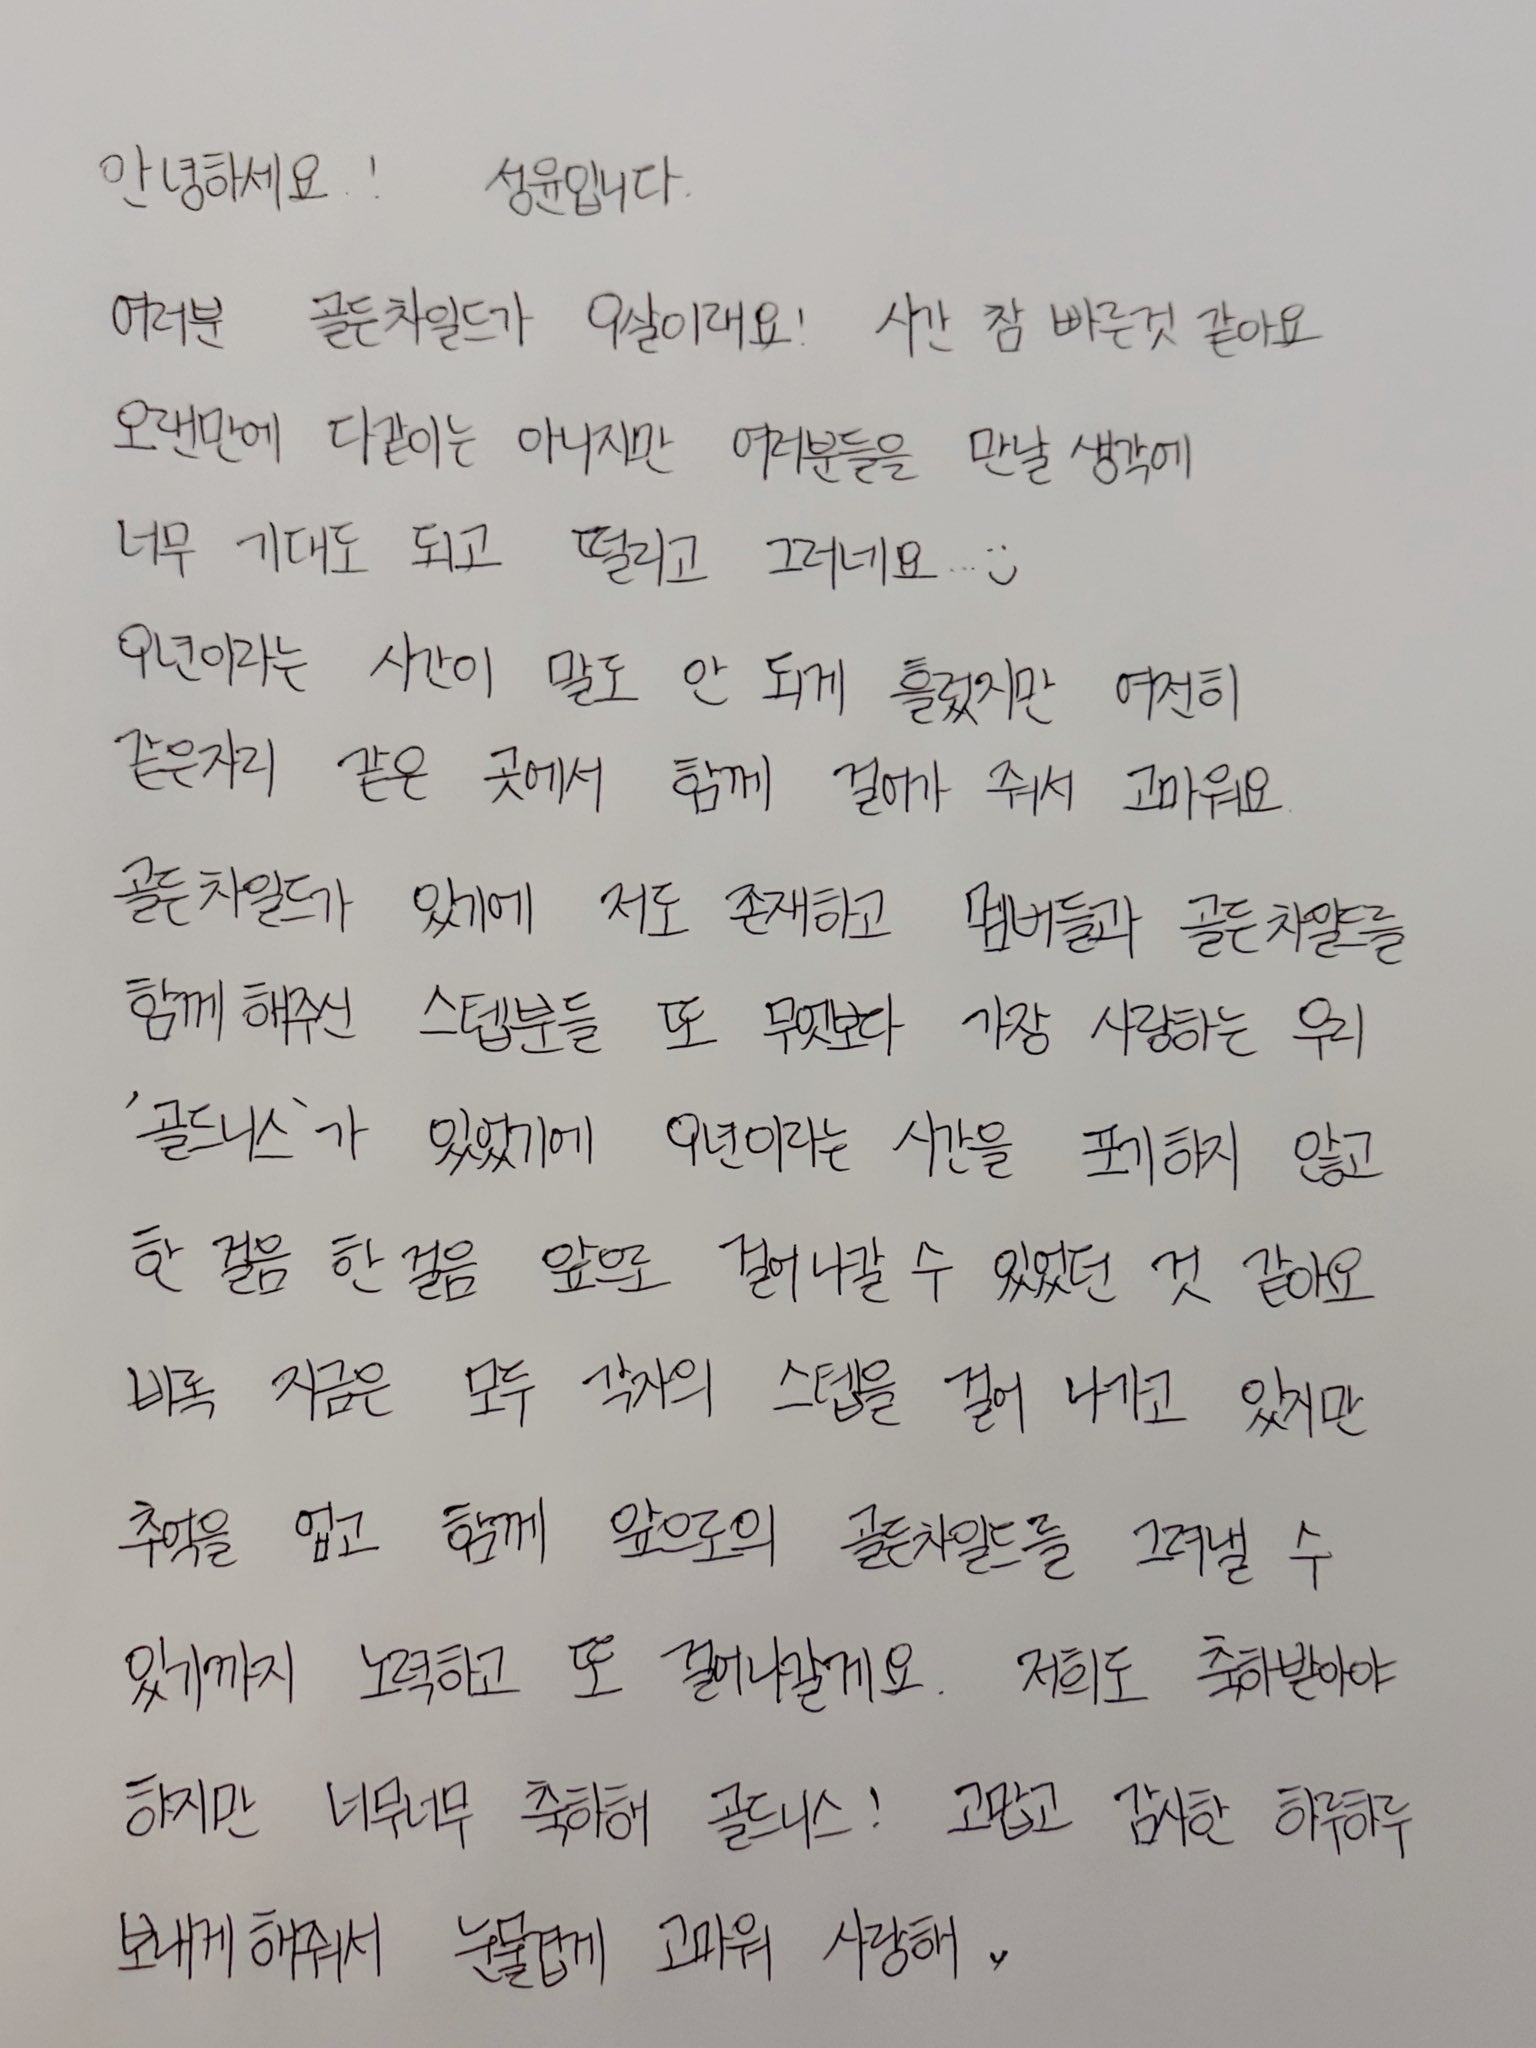 안녕하세요..! 성윤입니다.
여러분 골든차일드가 9살이래요! 시간 참 빠른것 같아요
오랜만에 다같이는 아니지만 여러분들을 만날 생각에
너무 기대도 되고 떨리고 그러네요...:)
9년이라는 시간이 말도 안 되게 흘렀지만 여전히
같은자리 같은 곳에서 함께 걸어가 줘서 고마워요.
골든차일드가 있기에 저도 존재하고 멤버들과 골든차일드를
함께 해주신 스텝분들 또 무엇보다 가장 사랑하는 우리
'골드니스'가 있었기에 9년이라는 시간을 포기하지 않고
한 걸음 한 걸음 앞으로 걸어나갈 수 있었던 것 같아요
비록 지금은 모두 각자의 스텝을 걸어 나가고 있지만
추억을 업고 함께 앞으로의 골든차일드를 그려낼 수
있기까지 노력하고 또 걸어나갈게요. 저희도 축하받아야
하지만 너무너무 축하해 골드니스! 고맙고 감사한 하루하루
보내게 해줘서 눈물겹게 고마워 사랑해 ♥